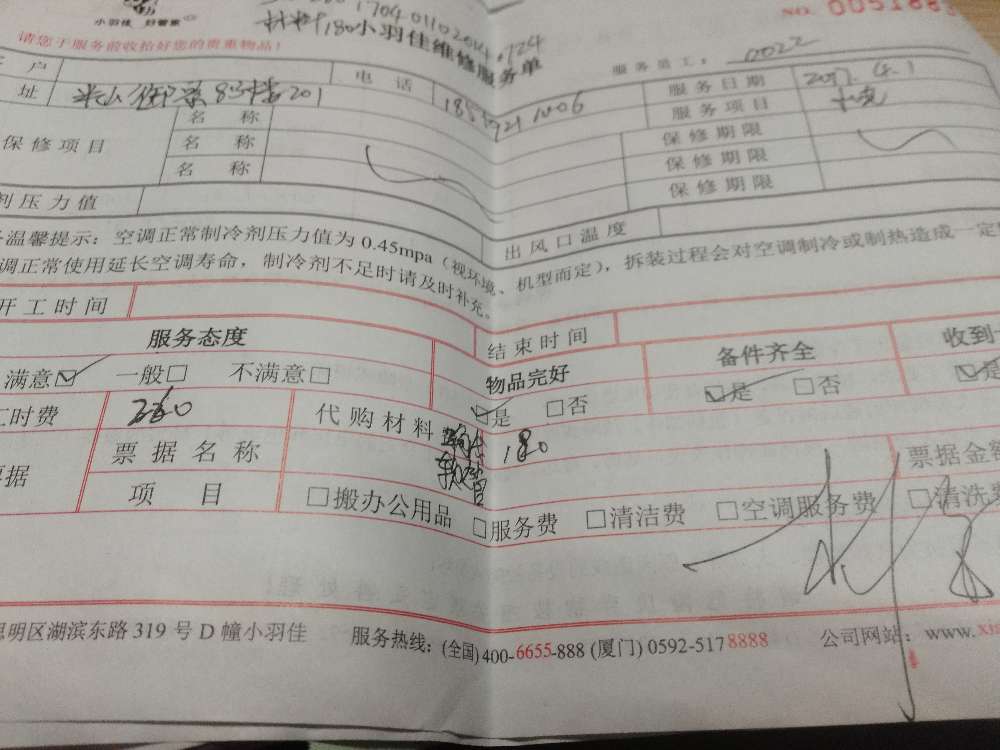 小羽佳 好管家
170401102014.724
NO. 0051883
请您于服务前收拾好您的贵重物品!
材料180 小羽佳维修服务单
服务员工: 0022
户 电话 服务日期 2017.4.1
址 83栋201 服务项目
保修项目 名称 保修期限
名称 保修期限
名称 保修期限
剂压力值 出风口温度
温馨提示: 空调正常制冷剂压力值为 0.45mpa (视环境、机型而定), 拆装过程会对空调制冷或制热造成一定
调正常使用延长空调寿命, 制冷剂不足时请及时补充。
开工时间 结束时间
服务态度 物品完好 备件齐全 收到
满意☑ 一般□ 不满意□ ☑是 □否 ☑是 □否 ☑是
工时费 代购材料 软管 180
票据 票据名称 票据金额
项目 □搬办公用品 □服务费 □清洁费 □空调服务费 □清洗费
思明区湖滨东路 319 号 D 幢小羽佳 服务热线: (全国) 400-6655-888 (厦门) 0592-5178888 公司网站: www.xi